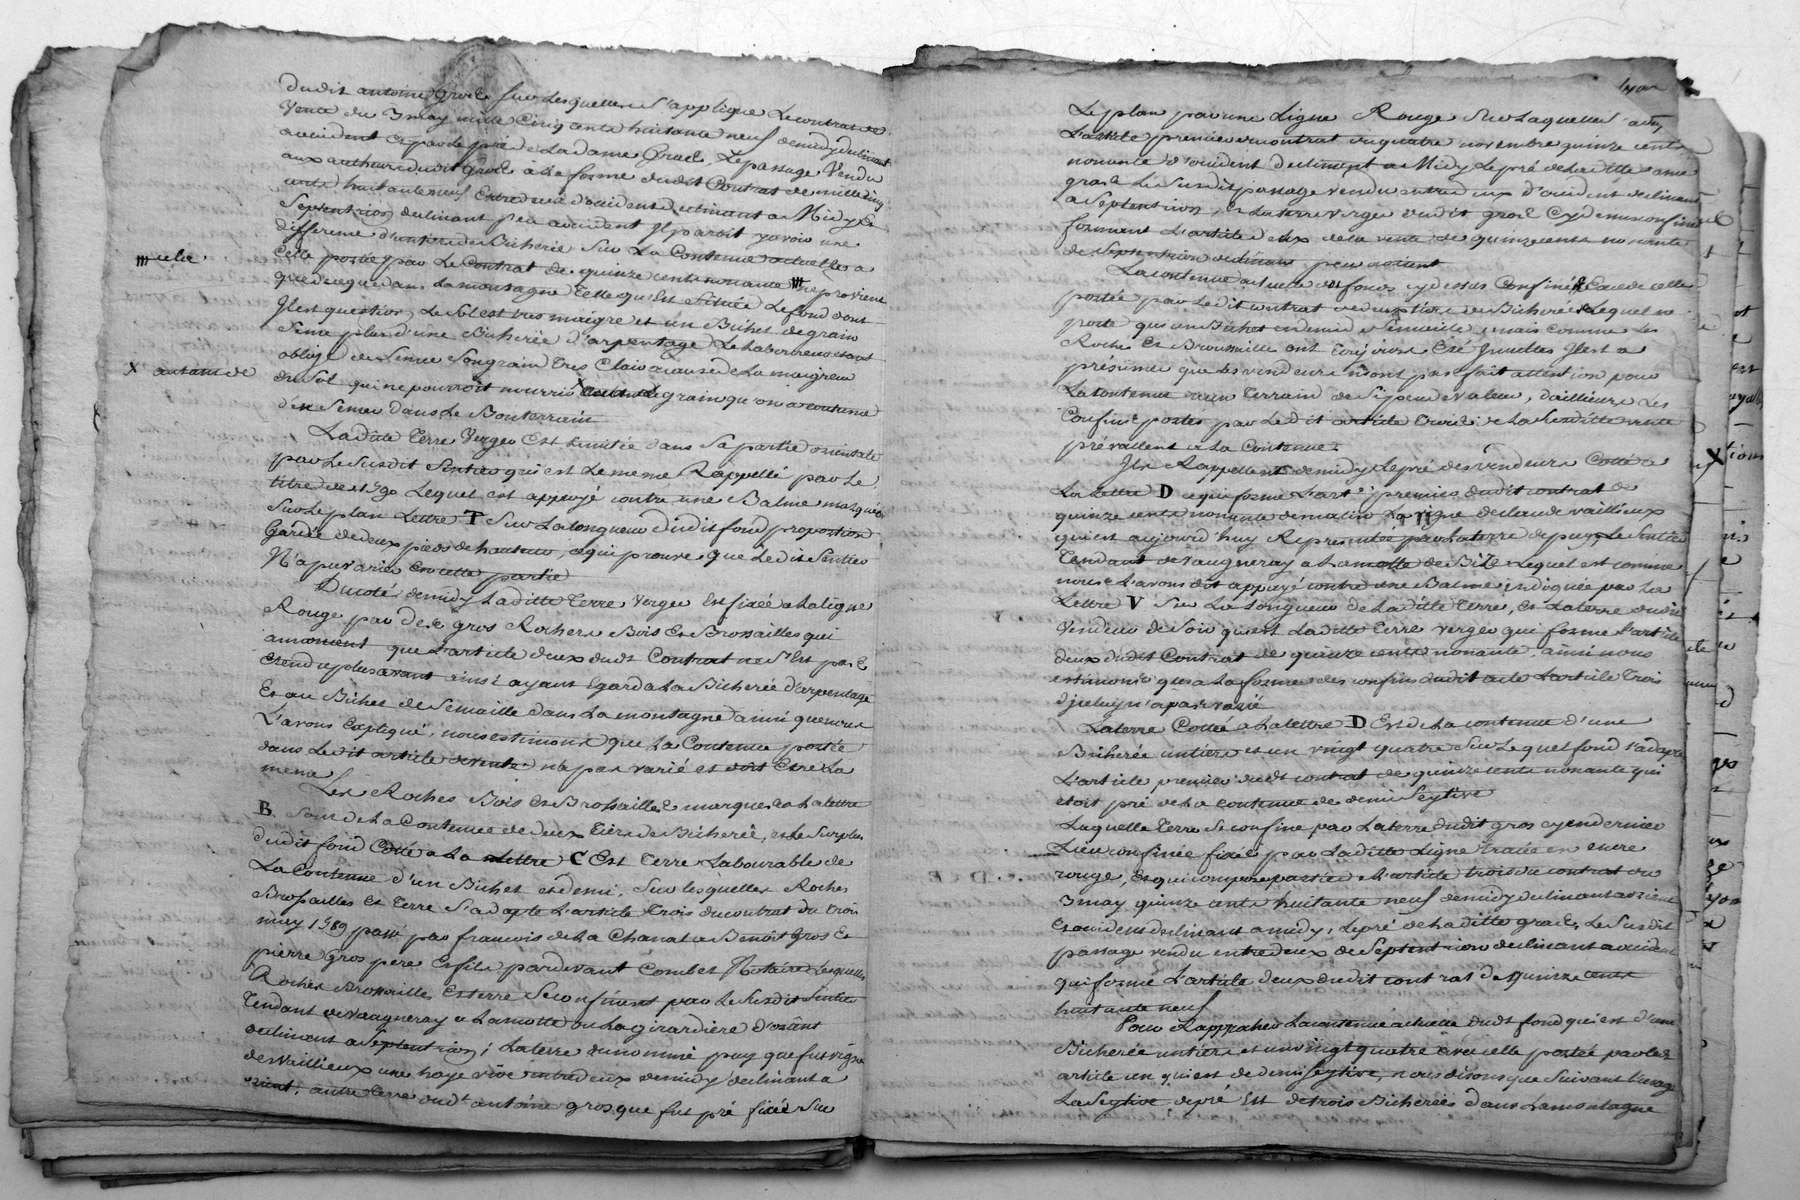 dudit antoine gros sur lesquelles s'applique le contrat de
vente du 3 may mille cinq cents huitante neuf de midy declinant
a occident est par le pré de la dame le passage vendu
aux autheurs dudit gros a la forme dudit contrat de mille cinq
cents huitante neuf entredeux d'occident declinant a midy &
septentrion declinant peu a occident Il paroit y avoir une
difference de bicherée sur la contenue actuelle a
celle portée par le contrat de quinze cents nonante ||| ne provient
||| cela
que de ce que dans la montagne telle qu'est située le fond dont
Il est question, le sol est tres maigre et un bichet de grain
seme plus d'une bicherée d'arpentage le laboureur etant
obligé de semer son grain tres clair a cause de la maigreur
X autant de
du sol qui ne pourroit nourrir X grain qu'on a coutume
d'en semer dans le bon terrain
Laditte terre verger est limitée dans sa partie orientale
par le susdit sentier qui est le meme rappellé par le
titre de 1590 lequel est appuyé contre une Balme marquée
sur le plan lettre T sur la longueur dudit fond proportion
gardée de deux pieds de hauteur, ce qui prouve que le dit sentier
N'a pu varier en cette partie
Du coté de midy laditte terre verger est fixée a la ligne
Rouge par de gros Rochers Bois et Brossailles qui
annoncent que l'article deux dudt Contrat ne s'est pas
etendu plus avant ainsi ayant egard a la Bicherée d'arpentage
Et au Bichet de semaille dans la montagne ainsi que nous
L'avons expliqué, nous estimons que la contenue portée
dans le dit article de vente n'a pas varié et doit etre la
meme
Les Roches Bois et Brossailles marquées a la lettre
B. sont de la contenue de deux tiers de Bicherée, et le surplus
dudit fond cotté a la lettre C est terre labourable de
la contenue d'un Bichet et demi, sur lesquelles Roches
Brossailles et terre s'adapte l'article trois du contrat du trois
may 1589 passé par francois de la Chanat a Benoit gros et
pierre gros pere et fils pardevant Combet Notaire lesquelles
Roches Brossailles et terre se confinent par le susdit sentier
tendant de vaugneray a Lamotte ou la girardiere d'orient
declinant a septentrion; la terre du nommé puy que fut vigne
de vaillieux une haye vive entredeux de midy declinant a
orient, autre terre dudt antoine gros que fut pré fixée sur
Le plan par une Ligne Rouge sur laquelle
L'article premier du contrat du quatre novembre quinze cents
nonante d'occident declinant a Midy le pré de laditte dame
le susdit passage vendu entredeux d'occident declinant
a septentrion, et la terre verger dudit gros cy dessus confinée
formant l'article deux de la vente de quinze cents nonante
de septentrion declinant peu a orient
La contenue actuelle des fonds cy dessus confinés excede celle
portée par ledit contrat de deux tiers de Bicherée lequel ne
porte qu'un Bichet et demi de semaille, mais comme les
Roches et Brossailles ont toujours eté Inutiles Il est a
présumer que les vendeurs n'ont pas fait attention pour
la contenue a un terrain de si peu de valeur, d'ailleurs les
Confins portés par ledit article trois de la susditte vente
prévallent a la contenue
Ils Rappellent de midy le pré des vendeurs Cotté a
la lettre D ce qui forme l'art. premier dudit contrat de
quinze cents nonante de matin la vigne de claude vaillieux
qui est aujourd'huy Representée par la terre de puy, le sentier
tendant de vaugneray a la motte de Bize lequel est comme
nous l'avons dit appuyé contre une Balme indiquée par la
lettre V sur la longueur de laditte terre, et la terre dudit
vendeur de soir qui est laditte terre verger qui forme l'article
deux dudit contrat de quinze cents nonante. ainsi nous
estimons que a la forme des confins dudit acte l'article trois
d'jceluy n'a pas varié
La terre Cottée a la lettre D est de la contenue d'une
Bicherée entiere et un vingt quatre sur lequel fond s'adapte
L'article premier dudt contrat de quinze cents nonante qui
etoit pré de la contenue de demi seytive
Laquelle terre se confine par la terre dudit gros cy en dernier
Lieu confinée fixée par laditte Ligne traitée en encre
rouge, et qui compose partie de l'article trois du contrat du
3 may quinze cents huitante neuf de midy declinant a orient
et occident declinant a midy, le pré de laditte le susdit
passage vendu entredeux de septentrion declinant a occident
qui forme l'article deux dudit contrat de quinze cents
huitante neuf
Pour Rapprocher la contenue actuelle dudt fond qui est d'une
Bicherée entiere et un vingt quatre a celle portée par led.
article un qui est de demi seytive, nous disons que suivant l'usage
La seytive de pré est de trois Bicherées dans la montagne